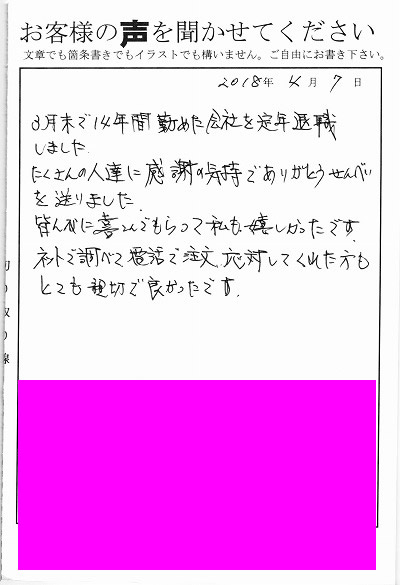 お客様の声を聞かせてください
文章でも箇条書きでもイラストでも構いません。ご自由にお書き下さい。
2018年 4月 7日
3月末で14年間勤めた会社を定年退職
しました.
たくさんの人達に感謝の気持でありがとうせんべい
を送りました.
皆んなに喜こんでもらって私も嬉しかったです.
ネットで調べて電話で注文、応対してくれた方も
とても親切で良かったです.
切り取り線